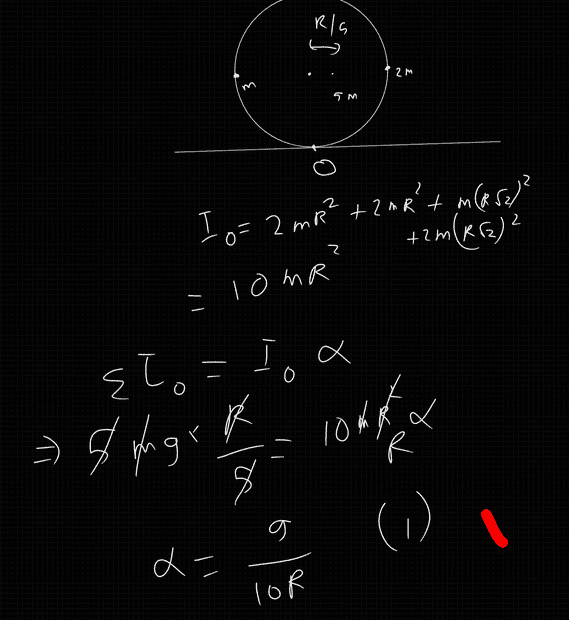 R/5
m
5m
2m
O
I_O = 2mR² + 2mR² + m(R√2)²
+2m(R√2)²
= 10mR²
Στ_O = I_O α
⇒ 5mg × R/5 = 10mR² α
R
α = g/10R (1)